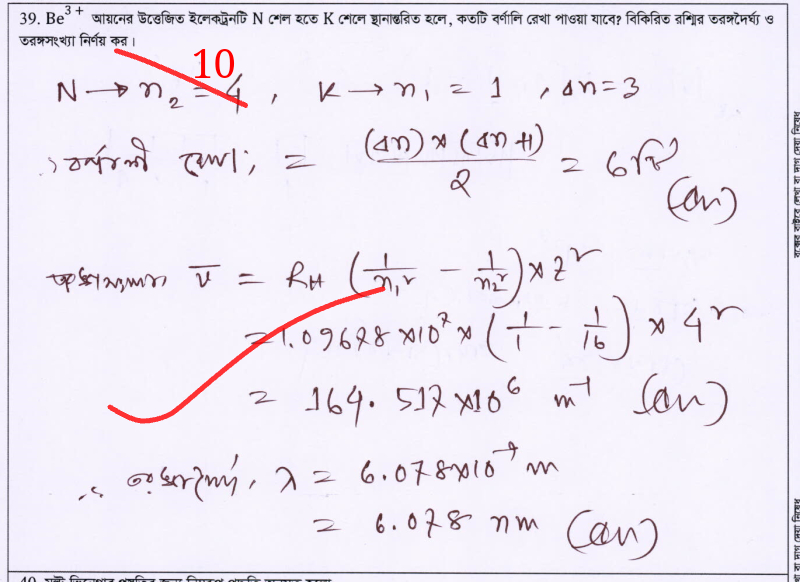 39. Be³⁺ আয়নের উত্তেজিত ইলেকট্রনটি N শেল হতে K শেলে স্থানান্তরিত হলে, কতটি বর্ণালি রেখা পাওয়া যাবে? বিকিরিত রশ্মির তরঙ্গদৈর্ঘ্য ও
তরঙ্গসংখ্যা নির্ণয় কর।
10
N → n₂ = 4, K → n₁ = 1, Δn = 3
∴ বর্ণালী রেখা, = (Δn) × (Δn+1) / 2 = 6 টি
(Ans)
তরঙ্গসংখ্যা ν̅ = R_H (1/n₁² − 1/n₂²) × z²
= 1.09678 × 10⁷ × (1/1 − 1/16) × 4²
= 164.517 × 10⁶ m⁻¹ (Ans)
∴ তরঙ্গদৈর্ঘ্য, λ = 6.078 × 10⁻⁹ m
= 6.078 nm (Ans)